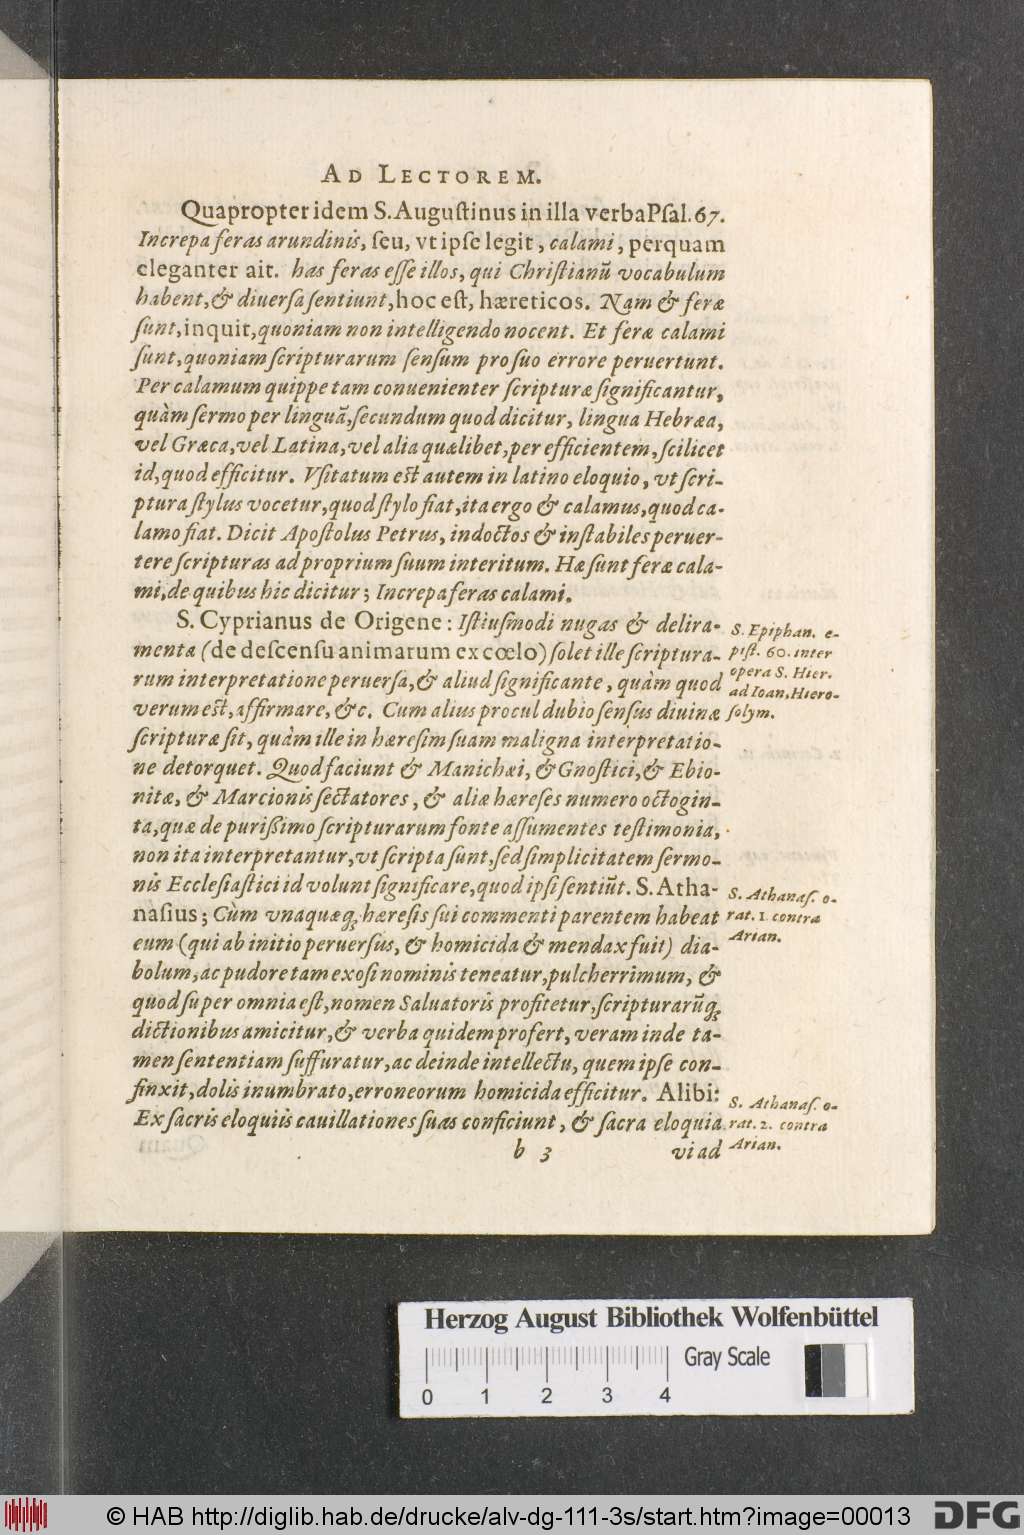 AD LECTOREM.
Quapropter idem S. Augustinus in illa verba Psal. 67.
Increpa feras arundinis, seu, vt ipse legit, calami, perquam
eleganter ait. has feras esse illos, qui Christianũ vocabulum
habent, & diuersa sentiunt, hoc est, hæreticos. Nam & feræ
sunt, inquit, quoniam non intelligendo nocent. Et feræ calami
sunt, quoniam scripturarum sensum pro suo errore peruertunt.
Per calamum quippe tam conuenienter scripturæ significantur,
quàm sermo per linguã, secundum quod dicitur, lingua Hebræa,
vel Græca, vel Latina, vel alia quælibet, per efficientem, scilicet
id, quod efficitur. Vsitatum est autem in latino eloquio, vt scri-
ptura stylus vocetur, quod stylo fiat, ita ergo & calamus, quod ca-
lamo fiat. Dicit Apostolus Petrus, indoctos & instabiles peruer-
tere scripturas ad proprium suum interitum. Hæ sunt feræ cala-
mi, de quibus hic dicitur; Increpa feras calami.
S. Cyprianus de Origene: Istiusmodi nugas & delira-
menta (de descensu animarum ex cœlo) solet ille scriptura-
rum interpretatione peruersa, & aliud significante, quàm quod
verum est, affirmare, &c. Cum alius procul dubio sensus diuinæ
scripturæ sit, quàm ille in hæresim suam maligna interpretatio-
ne detorquet. Quod faciunt & Manichæi, & Gnostici, & Ebio-
nitæ, & Marcionis sectatores, & aliæ hæreses numero octogin-
ta, quæ de purißimo scripturarum fonte assumentes testimonia,
non ita interpretantur, vt scripta sunt, sed simplicitatem sermo-
nis Ecclesiastici id volunt significare, quod ipsi sentiũt. S. Atha-
nasius; Cùm vnaquæq; hæresis sui commenti parentem habeat
eum (qui ab initio peruersus, & homicida & mendax fuit) dia-
bolum, ac pudore tam exosi nominis teneatur, pulcherrimum, &
quod super omnia est, nomen Saluatoris profitetur, scripturarũq;
dictionibus amicitur, & verba quidem profert, veram inde ta-
men sententiam suffuratur, ac deinde intellectu, quem ipse con-
finxit, dolis inumbrato, erroneorum homicida efficitur. Alibi:
Ex sacris eloquiis cauillationes suas conficiunt, & sacra eloquia
b 3 vi ad
S. Epiphan. e-
pist. 60. inter
opera S. Hier.
ad Ioan. Hiero-
solym.
S. Athanas. o-
rat. 1. contra
Arian.
S. Athanas. o-
rat. 2. contra
Arian.
Herzog August Bibliothek Wolfenbüttel
Gray Scale
0 1 2 3 4
© HAB http://diglib.hab.de/drucke/alv-dg-111-3s/start.htm?image=00013
DFG